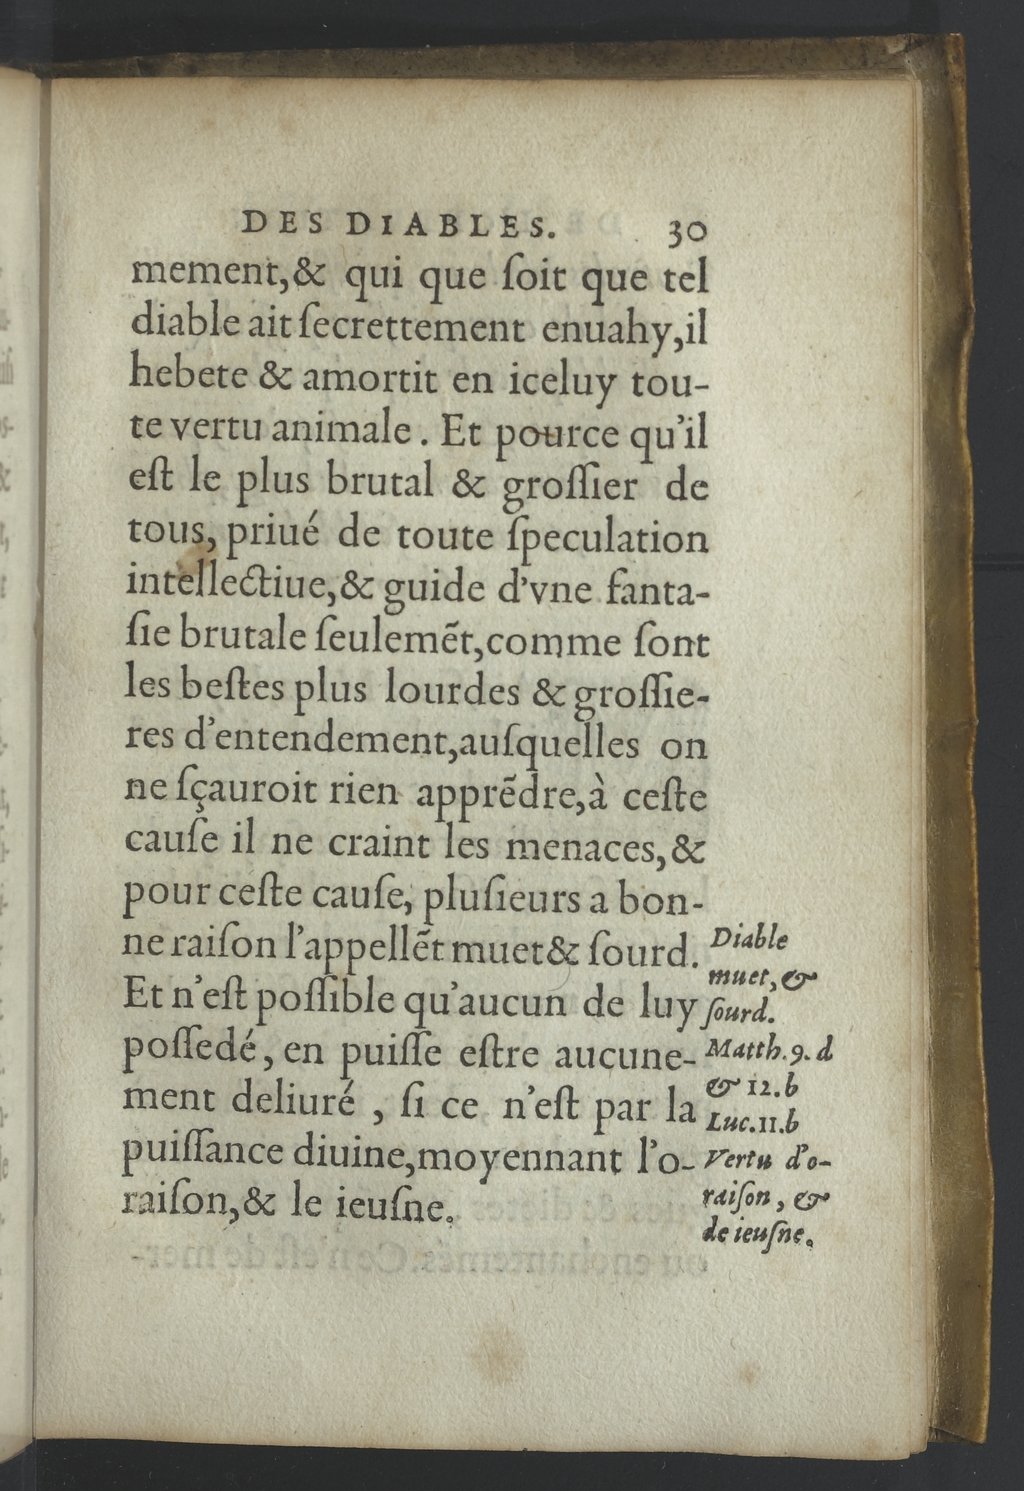 DES DIABLES. 30
mement,& qui que ſoit que tel
diable ait ſecrettement enuahy,il
hebete & amortit en iceluy tou-
te vertu animale . Et pource qu'il
eſt le plus brutal & groſſier de
tous, priué de toute ſpeculation
intellectiue,& guide d'vne fanta-
ſie brutale ſeulemẽt,comme ſont
les beſtes plus lourdes & groſſie-
res d'entendement,auſquelles on
ne ſçauroit rien apprẽdre,à ceſte
cauſe il ne craint les menaces,&
pour ceſte cauſe, pluſieurs a bon-
ne raiſon l'appellẽt muet& ſourd.
Et n'eſt poſſible qu'aucun de luy
poſſedé, en puiſſe eſtre aucune-
ment deliuré , ſi ce n'eſt par la
puiſſance diuine,moyennant l'o-
raiſon,& le ieuſne.
Diable
muet, &
ſourd.
Matth.9.d
& 12.b
Luc.11.b
Vertu d'o-
raiſon, &
de ieuſne.